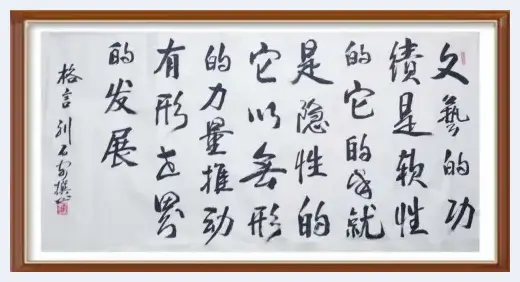 文藝的功
绩是软性
的它的成就
是隐性的
它以無形
的力量推动
有形世界
的发展
格言刘石